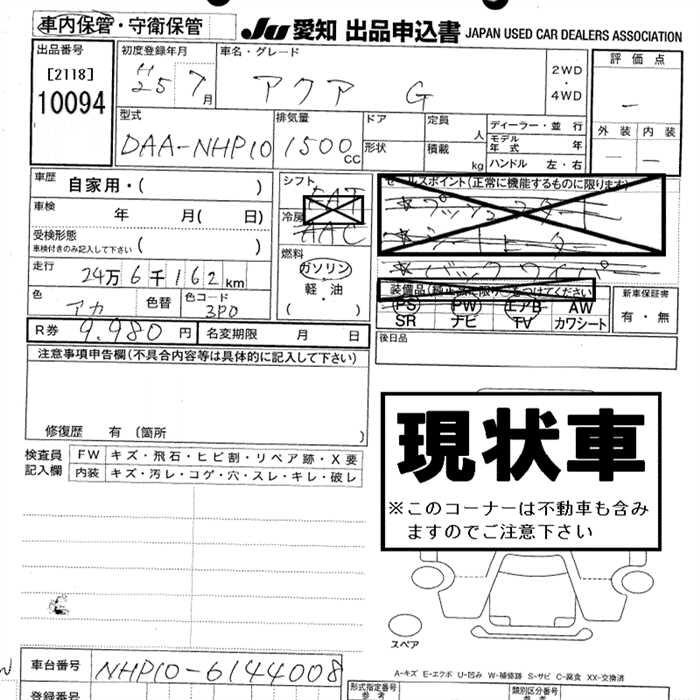 車内保管・守衛保管
JU 愛知 出品申込書 JAPAN USED CAR DEALERS ASSOCIATION
出品番号
[2118]
10094
初度登録年月
H25 7月
車名・グレード
アクア G
2WD
・
4WD
評価点
—
外装 内装
— —
型式
DAA-NHP10
排気量
1500 CC
ドア
形状
定員 人
積載 kg
ディーラー・並行
モデル年式 年
ハンドル 左・右
車歴 自家用・( )
車検 年 月( 日)
受検形態
車検付きのみ記入して下さい ( )
走行
24万6千162km
色
アカ
色替
色コード
3P0
シフト
FAT
冷房
AAC
燃料
ガソリン
・
軽・油
( )
セールスポイント(正常に機能するものに限ります)
☆プッシュスタート
☆シートヒーター
☆バックワイパー
装備品(純正品に限り○をつけてください)
PS PW エアB AW
SR ナビ TV カワシート
新車保証書
有・無
R券 9.980円 名変期限 月 日
後日品
注意事項申告欄(不具合内容等は具体的に記入して下さい)
修復歴 有 〔箇所 〕
検査員
記入欄
FW キズ・飛石・ヒビ割・リペア跡・X要
内装 キズ・汚レ・コゲ・穴・スレ・キレ・破レ
現状車
※このコーナーは不動車も含み
ますのでご注意下さい
スペア
A-キズ E-エクボ U-凹み W-補修跡 S-サビ C-腐食 XX-交換済
車台番号 NHP10-6144008
登録番号
形式指定番号
参考
類別区分番号
参考